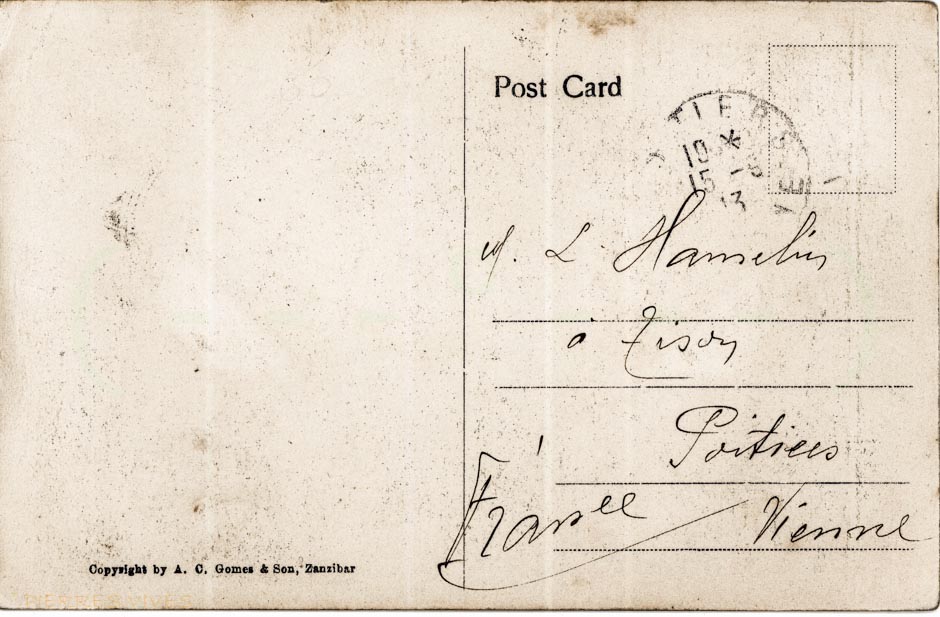 Post Card
TIERS
10 *
15 -
13
M. L. Hamelin
à Tison
Poitiers
France
Vienne
Copyright by A. C. Gomes & Son, Zanzibar